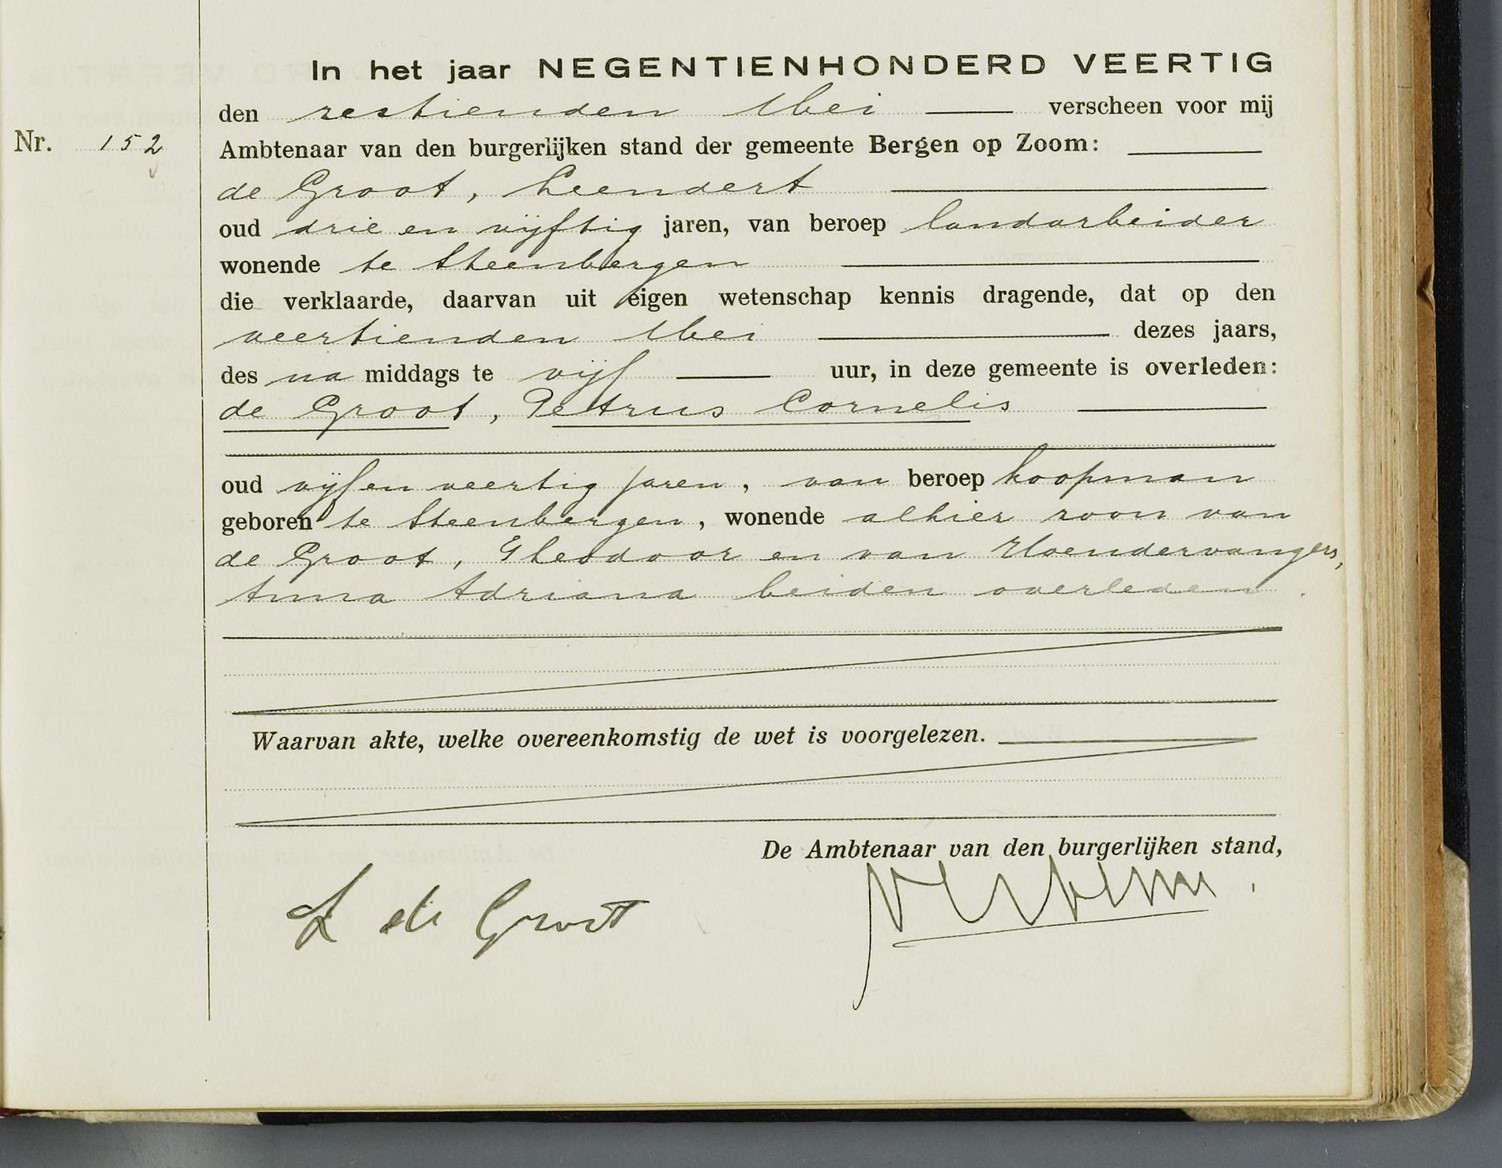 In het jaar NEGENTIENHONDERD VEERTIG
den zestienden Mei verscheen voor mij
Nr. 152
Ambtenaar van den burgerlijken stand der gemeente Bergen op Zoom:
de Groot, Leendert
oud drie en vijftig jaren, van beroep landarbeider
wonende te Steenbergen
die verklaarde, daarvan uit eigen wetenschap kennis dragende, dat op den
veertienden Mei dezes jaars,
des na middags te vijf uur, in deze gemeente is overleden:
de Groot, Petrus Cornelis
oud vijf en veertig jaren, van beroep koopman
geboren te Steenbergen, wonende alhier zoon van
de Groot, Theodoor en van Hoendervangers,
Anna Adriana beiden overleden.
Waarvan akte, welke overeenkomstig de wet is voorgelezen.
De Ambtenaar van den burgerlijken stand,
L de Groot